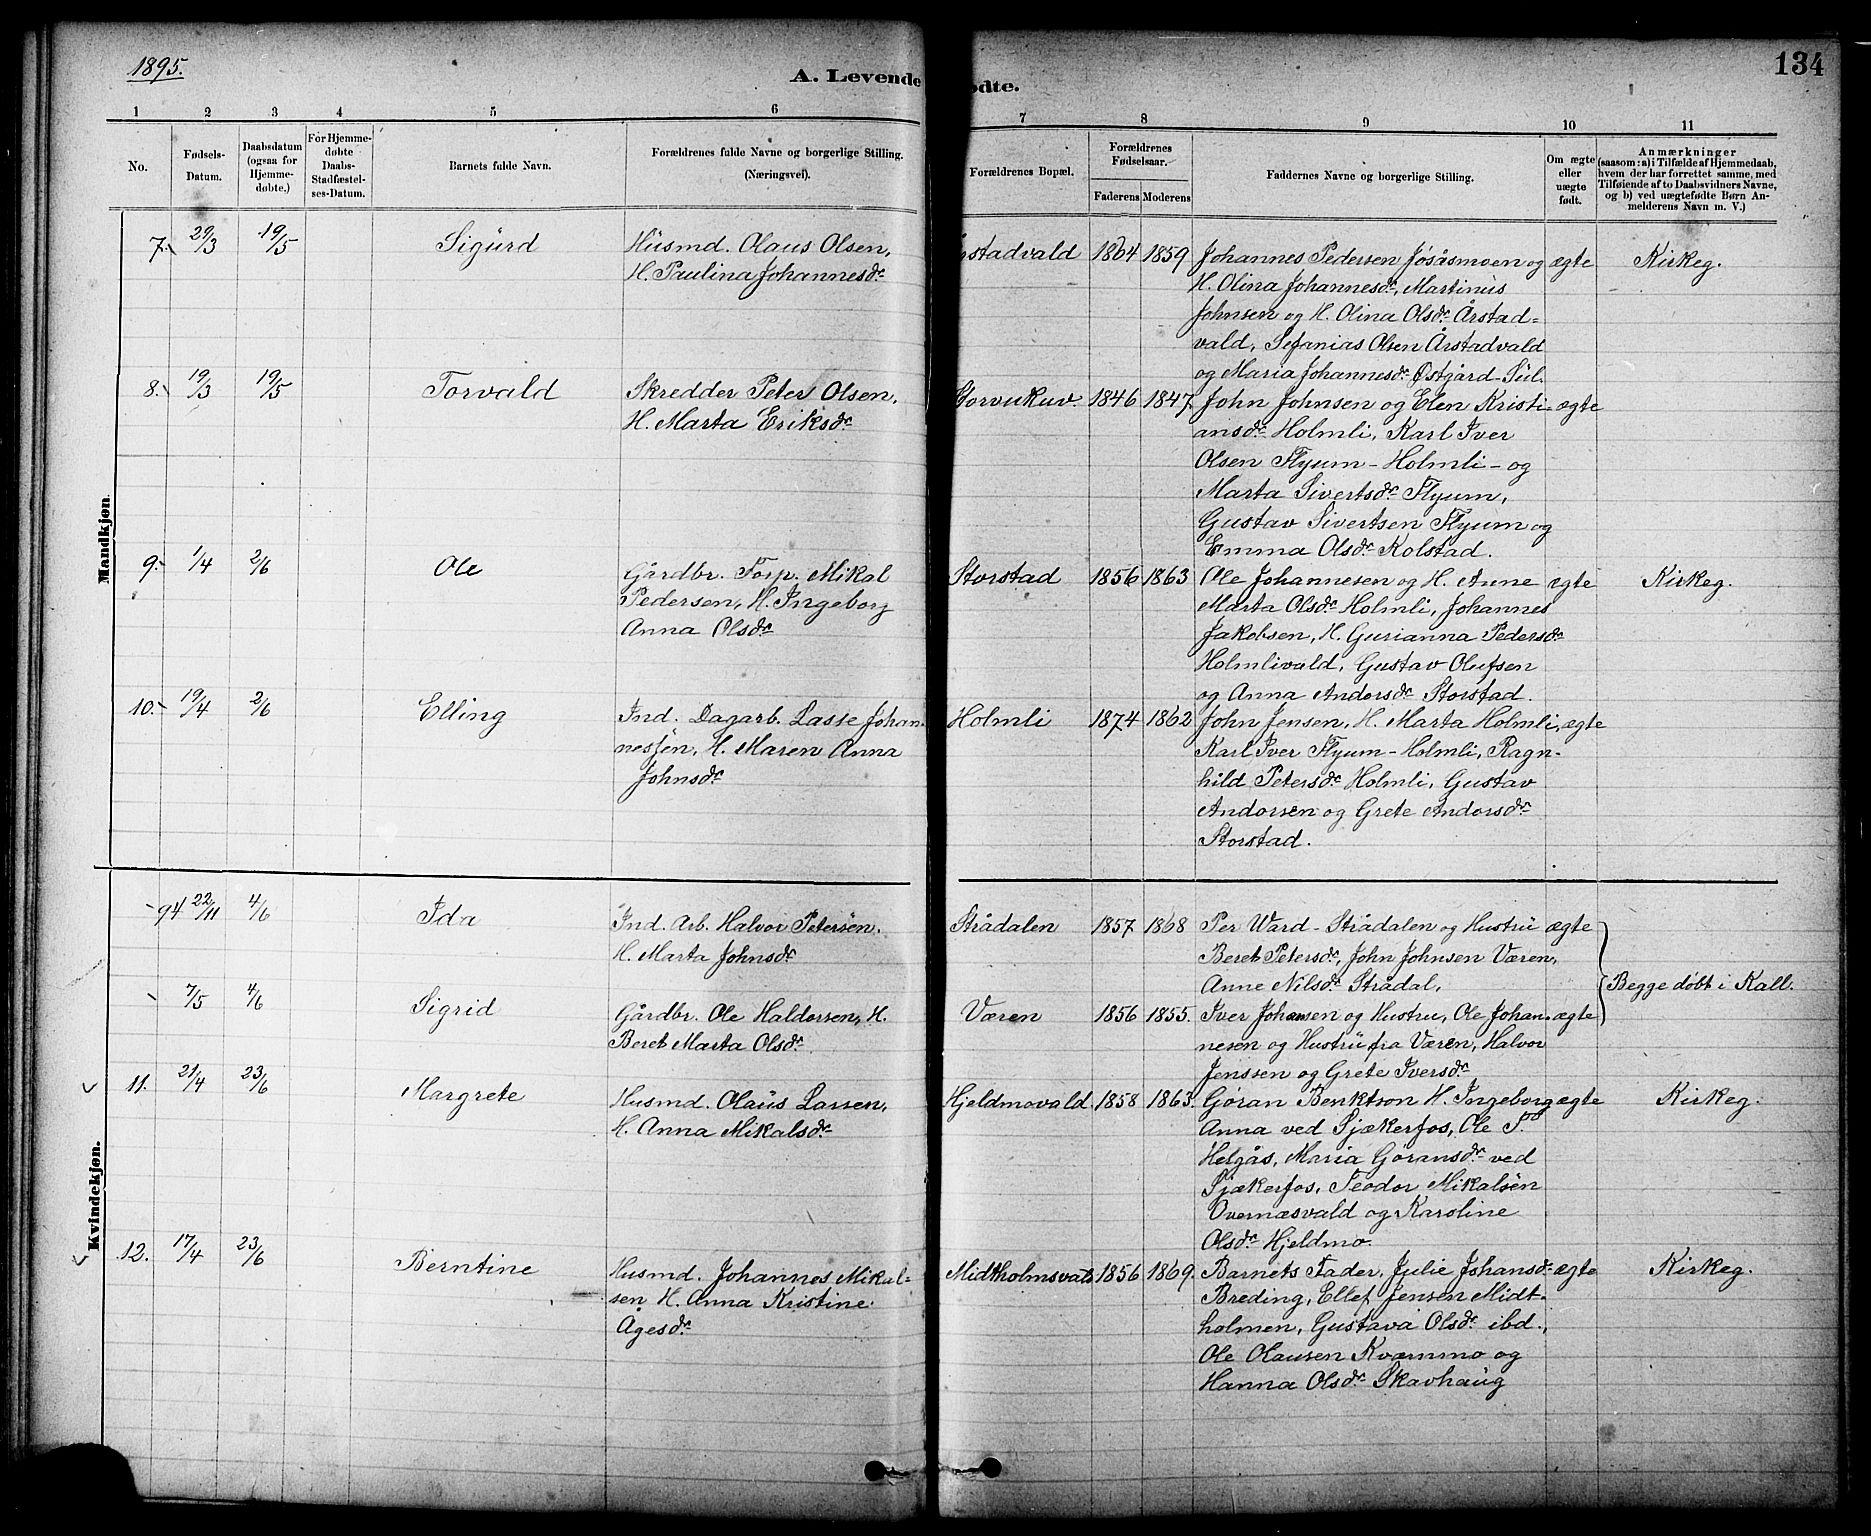 1895.
A. Levende
ødte.
134
1 2 3 4 5 6 7 8 9 10 11
No.
Fødsels-
Datum.
Daabsdatum
(ogsaa for
Hjemme-
døbte.)
For Hjemme-
døbte
Daabs-
Stadfæstel-
ses-Datum.
Barnets fulde Navn.
Forældrenes fulde Navne og borgerlige Stilling.
(Næringsvei).
Forældrenes Bopæl.
Forældrenes
Fødselsaar.
Faderens Moderens
Faddernes Navne og borgerlige Stilling.
Om ægte
eller
uægte
født.
Anmærkninger
(saasom: a) i Tilfælde af Hjemmedaab,
hvem der har forrettet samme, med
Tilføiende af to Daabsvidners Navne,
og b) ved uægtefødte Børn An-
melderens Navn m. V.)
Mandkjøn.
7. 29/3 19/5 Sigurd
Husmd. Olaus Olsen,
H. Paulina Johannesdr
Årstadvald 1864 1859
Johannes Pedersen Jøsåsmoen og
H. Olina Johannesdr, Martinus
Johnsen og H. Olina Olsdr Årstad-
vald, Sefanias Olsen Årstadvald
og Maria Johannesdr Østgård-Sul.
ægte Kirkeg.
8. 19/3 19/5 Torvald
Skredder Peter Olsen,
H. Marta Eriksdr
Storvukuv. 1846 1847
John Johnsen og Elen Kristi-
ansdr Holmli, Karl Iver
Olsen Flyum-Holmli- og
Marta Sivertsdr Flyum,
Gustav Sivertsen Flyum og
Emma Olsdr Kolstad.
ægte
9. 1/4 2/6 Ole
Gårdbr. Forp. Mikal
Pedersen, H. Ingeborg
Anna Olsdr
Storstad 1856 1863
Ole Johannesen og H. Anne
Marta Olsdr Holmli, Johannes
Jakobsen, H. Gurianna Pedersdr
Holmlivald, Gustav Olufsen
og Anna Andorsdr Storstad.
ægte Kirkeg.
10. 19/4 2/6 Elling
Ind. Dagarb. Lasse Johan
nessen, H. Maren Anna
Johnsdr
Holmli 1874 1862
John Jensen, H. Marta Holmli,
Karl Iver Flyum-Holmli, Ragn-
hild Petersdr Holmli, Gustav
Andorsen og Grete Andorsdr
Storstad.
ægte
Kvindekjøn.
94 22/11 4/6 Ida
Ind. Arb. Halvor Petersen,
H. Marta Johnsdr
Strådalen 1857 1868
Per Ward-Strådalen og Hustru
Beret Petersdr, John Johnsen Væren,
Anne Nilsdr Strådal,
ægte
Begge døbt i Kall.
7/5 4/6 Sigrid
Gårdbr. Ole Haldorsen, H.
Beret Marta Olsdr
Væren 1856 1855.
Iver Johansen og Hustru, Ole Johan-
nesen og Hustru fra Væren, Halvor
Jenssen og Grete Iversdr
ægte
11. 21/4 23/6 Margrete
Husmd. Olaus Larsen,
H. Anna Mikalsdr
Hjeldmovald 1858 1863.
Gøran Benktson H. Ingeborg
Anna ved Sjækerfos, Ole
Helgås, Maria Gøransdr ved
Sjækerfos, Teodor Mikalsen
Overnæsvald og Karoline
Olsdr Hjeldmo.
ægte Kirkeg.
12. 17/4 23/6 Berntine
Husmd. Johannes Mikal-
sen H. Anna Kristine
Ågesdr
Midtholmsvald 1856 1869.
Barnets Fader, Julie Johansdr
Breding, Ellef Jensen Midt-
holmen, Gustava Olsdr ibd.,
Ole Olausen Kværnmo og
Hanna Olsdr Skavhaug
ægte Kirkeg.